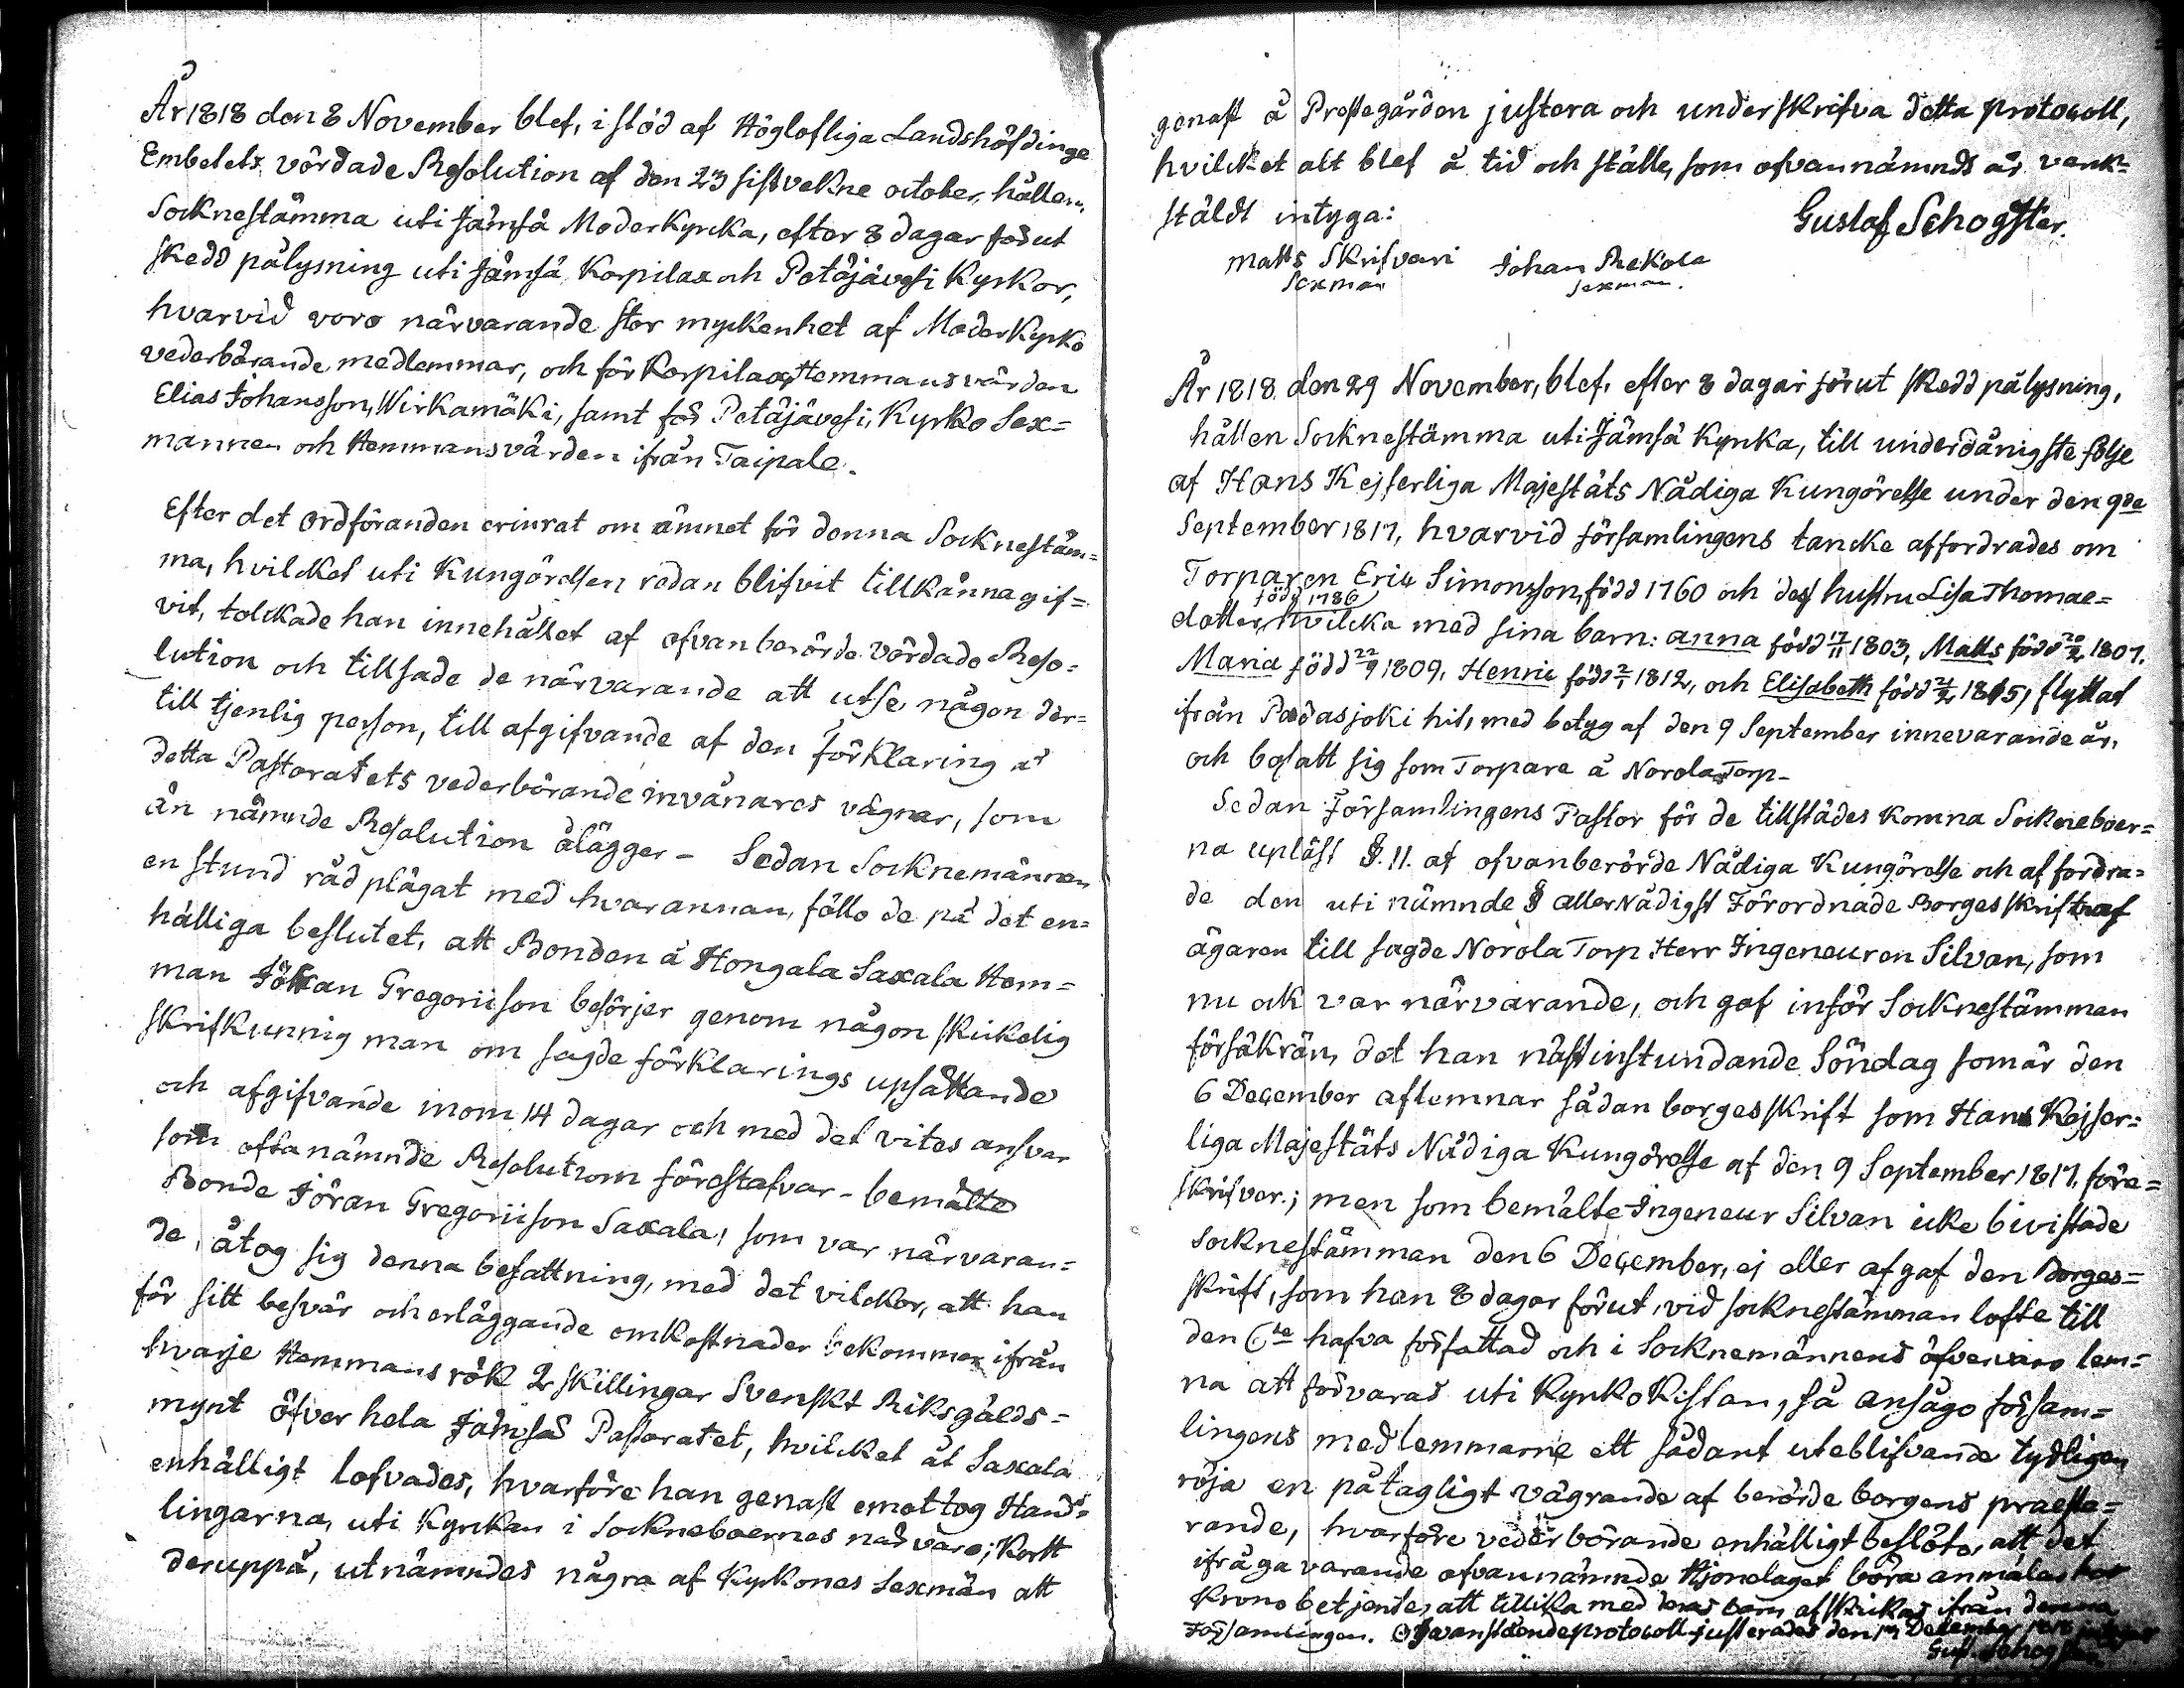 År 1818 den 8 November blef, i stöd af Höglofliga Landshöfdinge
Embetets vördade Resolution af den 23 sistvekne october, hållen
Socknestämma uti Jämsä Moderkyrka, efter 8 dagar förut
skedd pålysning uti Jämsä Korpilax och Petäjävesi Kyrkor,
hvarvid voro närvarande stor myckenhet af Moderkyrko
vederbörande medlemmar, och för Korpilax Hemmansvärden
Elias Johansson, Wirkamäki, samt för Petäjävesi, Kyrko Sex=
mannen och Hemmansvärden ifrån Taipale.
Efter det ordföranden erinrat om ämnet för denna Socknestäm=
ma, hvilcket uti Kungörelsen redan blifvit tillkännagif=
vit, tolckade han innehållet af ofvanberörde vördade Reso=
lution och tillsade de närvarande att utse någon der=
till tjenlig person, till afgifvande af den förklaring å
detta Pastoratets vederbörande invånares vägnar, som
än nämnde Resolution ålägger – Sedan Socknemännen
en stund rådplägat med hvarannan, föllo de på det en=
hälliga beslutet, att Bonden å Hongala Saxala Hem=
man Jöran Gregoriison besörjer genom någon skickelig
skrifkunnig man om sagde förklarings upsättande
och afgifvande inom 14 dagar och med det vites ansvar
som oftanämnde Resolution förestafvar – bemälte
Bonde Jöran Gregoriison Saxala, som var närvaran=
de, åtog sig denna befattning, med det vilckor, att han
för sitt besvär och erläggande omkostnader bekommer ifrån
hvarje Hemmans rök 2 skillingar Svenskt Riksgälds=
mynt öfver hela Jämsä Pastoratet, hvilcket åt Saxala
enhälligt lofvades, hvarföre han genast emottog Hand=
lingarna, uti Kyrckan i Sockneboernes närvaro; Kortt
deruppå, utnämndes några af Kyrkones Sexmän att
genast å Prestegården justera och underskrifva detta protocoll,
hvilcket alt blef å tid och ställe, som ofvannämnds är verk=
stäldt intyga:
Gustaf Schogster.
Matts Skrifvari Johan Rekola
Sexman Sexman.
År 1818 den 29 November, blef, efter 8 dagar förut skedd pålysning,
hållen Socknestämma uti Jämsä Kyrcka, till underdånigste följe
af Hans Kejserliga Majestäts Nådiga Kungörelse under den 9de
September 1817, hvarvid församlingens tancke affordrades om
Torparen Eric Simonsson, född 1760 och dess hustru Lisa Thomae=
född 1786
dotter, hvilcka med sina barn: Anna född 17/11 1803, Matts född 20/2 1807.
Maria född 22/9 1809, Henric född 2/1 1812, och Elisabeth född 21/2 1815, flyttat
ifrån Padasjoki hit, med betyg af den 9 September innevarande år,
och bosatt sig som Torpare å Norola Torp –
Sedan Församlingens Pastor för de tillstädes komna Sockneboer=
na upläst §. 11. af ofvanberörde Nådiga Kungörelse och affordra=
de den uti nämnde § allernådigst Förordnade Borges skrift af
ägaren till sagde Norola Torp Herr Ingeneuren Silvan, som
nu ock var närvarande, och gaf inför Socknestämman
försäkran, det han nästinstundande Söndag som är den
6 December aflemnar sådan borgesskrift som Hans Kejser=
liga Majestäts Nådiga Kungörelse af den 9 September 1817. före=
skrifver; men som bemälte Ingeneur Silvan icke bivistade
Socknestämman den 6 December, ej eller afgaf den Borges=
skrift, som han 8 dagar förut, vid socknestämman lofte till
den 6te hafva författad och i Socknemännens öfvervaro lem=
na att förvaras uti Kyrko Kistan, så ansågo försam=
lingens medlemmarne ett sådant uteblifvande tydligen
röja en påtagligt vägrande af berörde borgens præste=
rande, hvarföre vederbörande enhälligt beslöto, att det
ifråga varande ofvannämnde Hjonelaget böra anmälas hos
Kronobetjente, att tillika med deras barn afskickas ifrån denna
Församlingen. Ofvanstående protocoll justerades den December 1818
Gust. Schogster